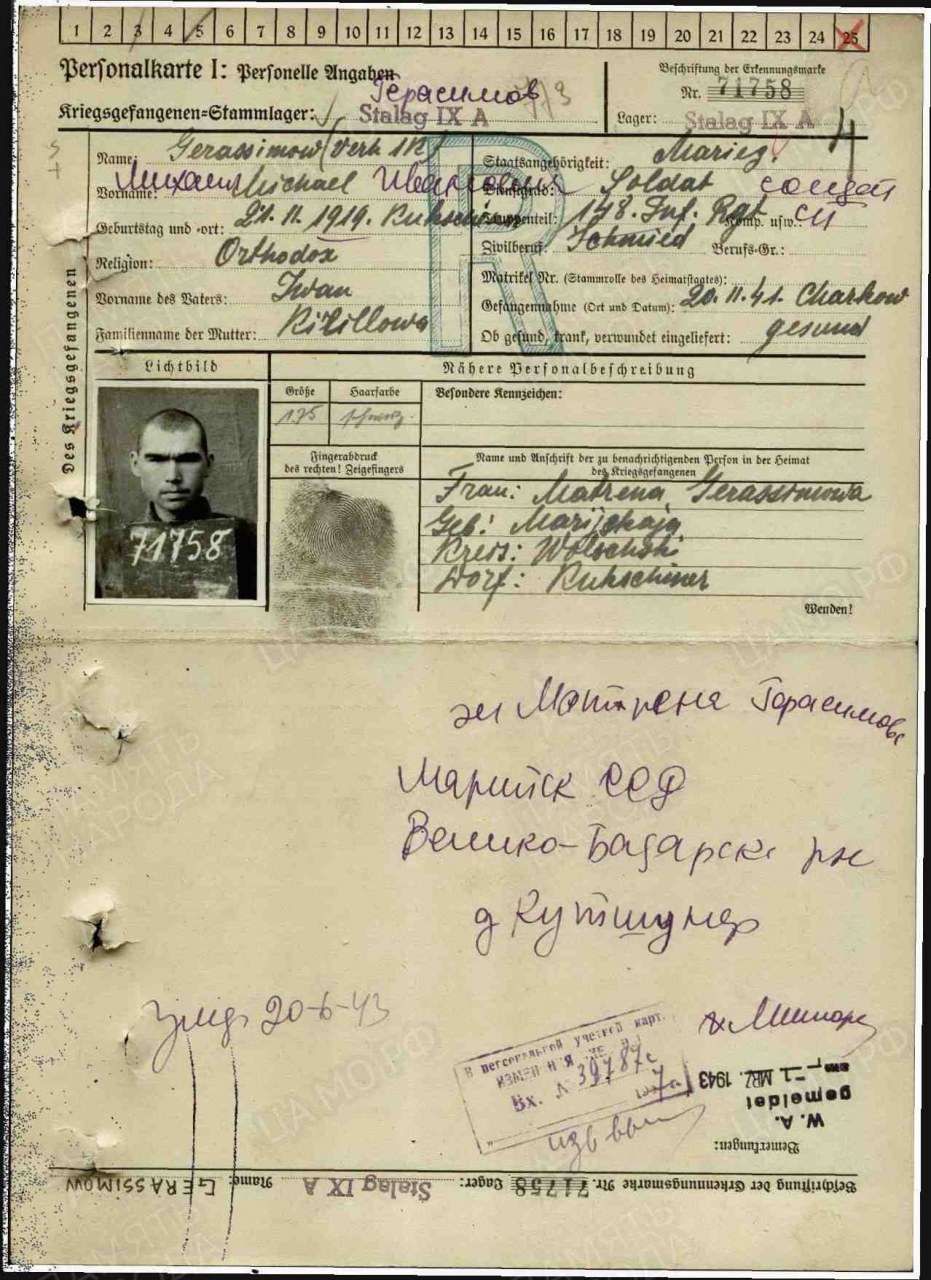 1 2 3 4 5 6 7 8 9 10 11 12 13 14 15 16 17 18 19 20 21 22 23 24 25
Personalkarte I: Personelle Angaben
Герасимов
Kriegsgefangenen-Stammlager: Stalag IX A
Beschriftung der Erkennungsmarke
Nr. 71758
Lager: Stalag IX A
Des Kriegsgefangenen
Name: Gerassimow
Vorname: Михаил Michael Иванович
Geburtstag und -ort: 21.11.1919.
Religion: Orthodox
Vorname des Vaters: Iwan
Familienname der Mutter: Kirillowa
Staatsangehörigkeit: Mariez.
Dienstgrad: Soldat солдат
Truppenteil: 178. Inf. Rgt Komp. usw.: СП
Zivilberuf: Schmied Berufs-Gr.:
Matrikel Nr. (Stammrolle des Heimatstaates):
Gefangennahme (Ort und Datum): 20.11.41. Charkow
Ob gesund, krank, verwundet eingeliefert: gesund
Lichtbild
Nähere Personalbeschreibung
Größe Haarfarbe Besondere Kennzeichen:
175 schwarz.
71758
Fingerabdruck
des rechten! Zeigefingers
Name und Anschrift der zu benachrichtigenden Person in der Heimat
des Kriegsgefangenen
Frau: Matrena Gerassimowa
Geb: Marijskaja
Kreis:
Dorf: Kuhschiner
Wenden!
Матрена Герасимова
Марийск ССР
Велико- рн
д
20-6-43
В персональной учетной карт.
ИЗМЕНЕНИЯ
Вх. № 39787с
Bemerkungen:
W. A.
gemeldet
am -1. MRZ. 1943
Beschriftung der Erkennungsmarke Nr. 71758 Lager: Stalag IX A Name: GERASSIMOW
ПАМЯТЬ
НАРОДА
ЦАМО.РФ